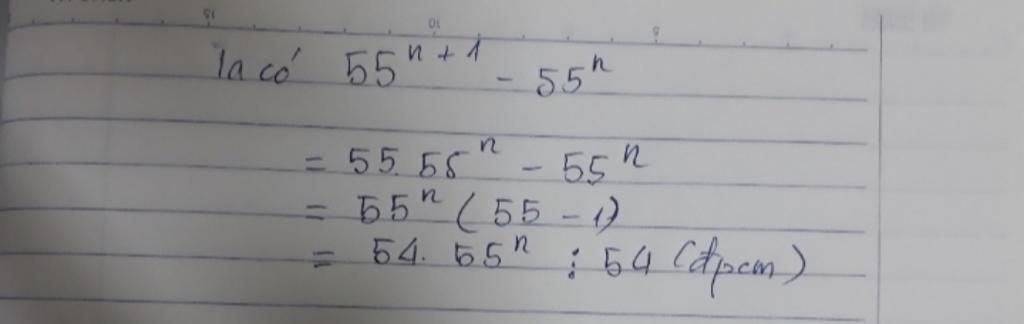 Ta có 55^{n+1} - 55^n
= 55.55^n - 55^n
= 55^n (55 - 1)
= 54. 55^n ⋮ 54 (đpcm)